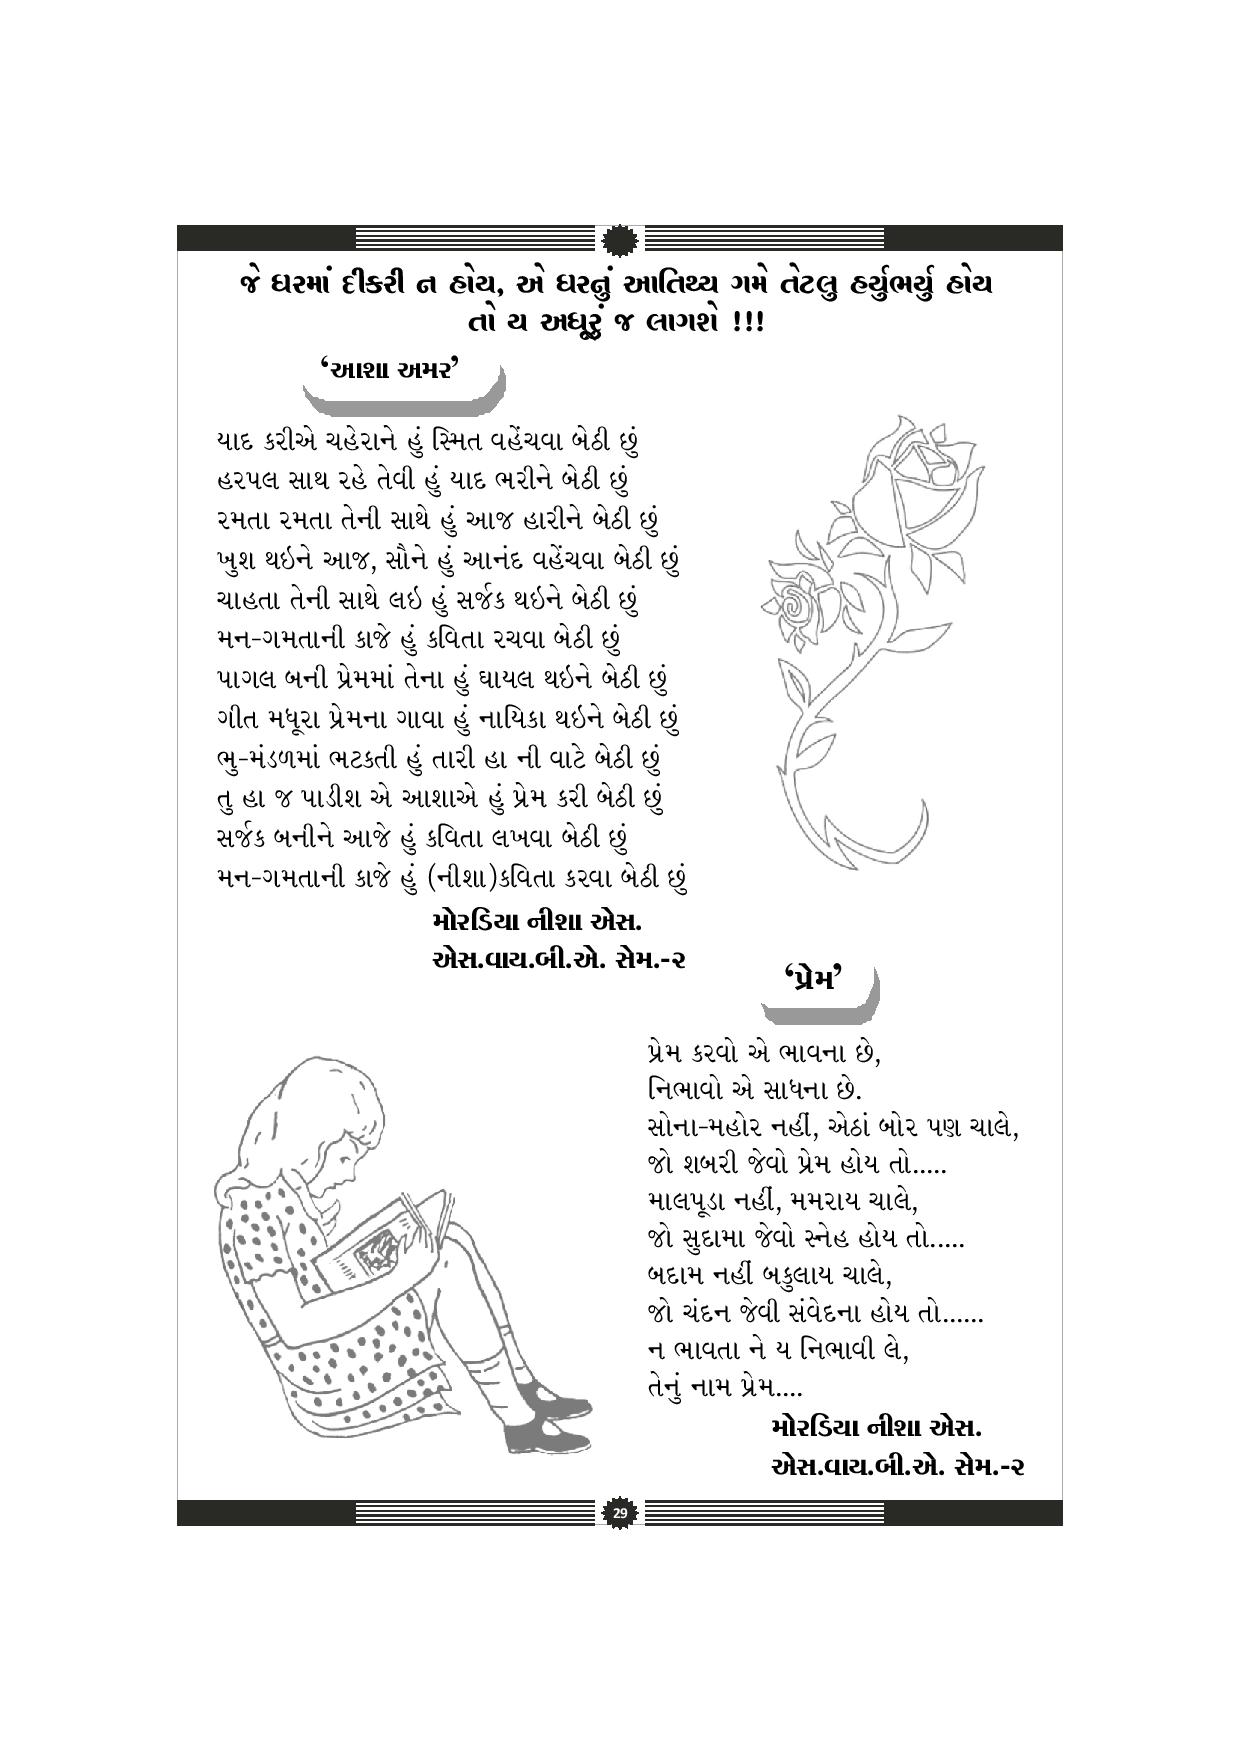 જે ઘરમાં દીકરી ન હોય, એ ઘરનું આતિથ્ય ગમે તેટલુ હર્યુભર્યુ હોય
તો ય અધૂરું જ લાગશે !!!
‘આશા અમર’
યાદ કરીએ ચહેરાને હું સ્મિત વહેંચવા બેઠી છું
હરપલ સાથ રહે તેવી હું યાદ ભરીને બેઠી છું
રમતા રમતા તેની સાથે હું આજ હારીને બેઠી છું
ખુશ થઇને આજ, સૌને હું આનંદ વહેંચવા બેઠી છું
ચાહતા તેની સાથે લઇ હું સર્જક થઇને બેઠી છું
મન-ગમતાની કાજે હું કવિતા રચવા બેઠી છું
પાગલ બની પ્રેમમાં તેના હું ઘાયલ થઇને બેઠી છું
ગીત મધૂરા પ્રેમના ગાવા હું નાયિકા થઇને બેઠી છું
ભુ-મંડળમાં ભટકતી હું તારી હા ની વાટે બેઠી છું
તુ હા જ પાડીશ એ આશાએ હું પ્રેમ કરી બેઠી છું
સર્જક બનીને આજે હું કવિતા લખવા બેઠી છું
મન-ગમતાની કાજે હું (નીશા)કવિતા કરવા બેઠી છું
મોરડિયા નીશા એસ.
એસ.વાય.બી.એ. સેમ.-૨
‘પ્રેમ’
પ્રેમ કરવો એ ભાવના છે,
નિભાવો એ સાધના છે.
સોના-મહોર નહીં, એઠાં બોર પણ ચાલે,
જો શબરી જેવો પ્રેમ હોય તો.....
માલપૂડા નહીં, મમરાય ચાલે,
જો સુદામા જેવો સ્નેહ હોય તો.....
બદામ નહીં બકુલાય ચાલે,
જો ચંદન જેવી સંવેદના હોય તો......
ન ભાવતા ને ય નિભાવી લે,
તેનું નામ પ્રેમ....
મોરડિયા નીશા એસ.
એસ.વાય.બી.એ. સેમ.-૨
29